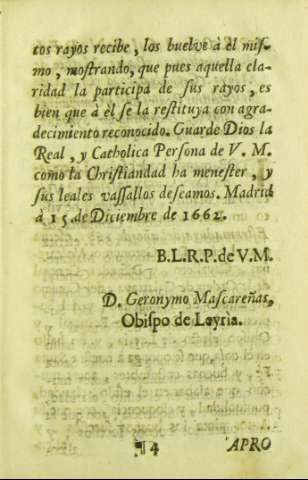 tos rayos recibe, los buelve à èl mis-
mo, mostrando, que pues aquella cla-
ridad la participa de sus rayos, es
bien que à èl se la restituya con agra-
decimiento reconocido. Guarde Dios la
Real, y Catholica Persona de V. M.
como la Christiandad ha menester, y
sus leales vassallos deseamos. Madrid
à 15. de Diciembre de 1662.
B.L.R.P. de V.M.
D. Geronymo Mascareñas,
Obispo de Leyria.
¶4 APRO